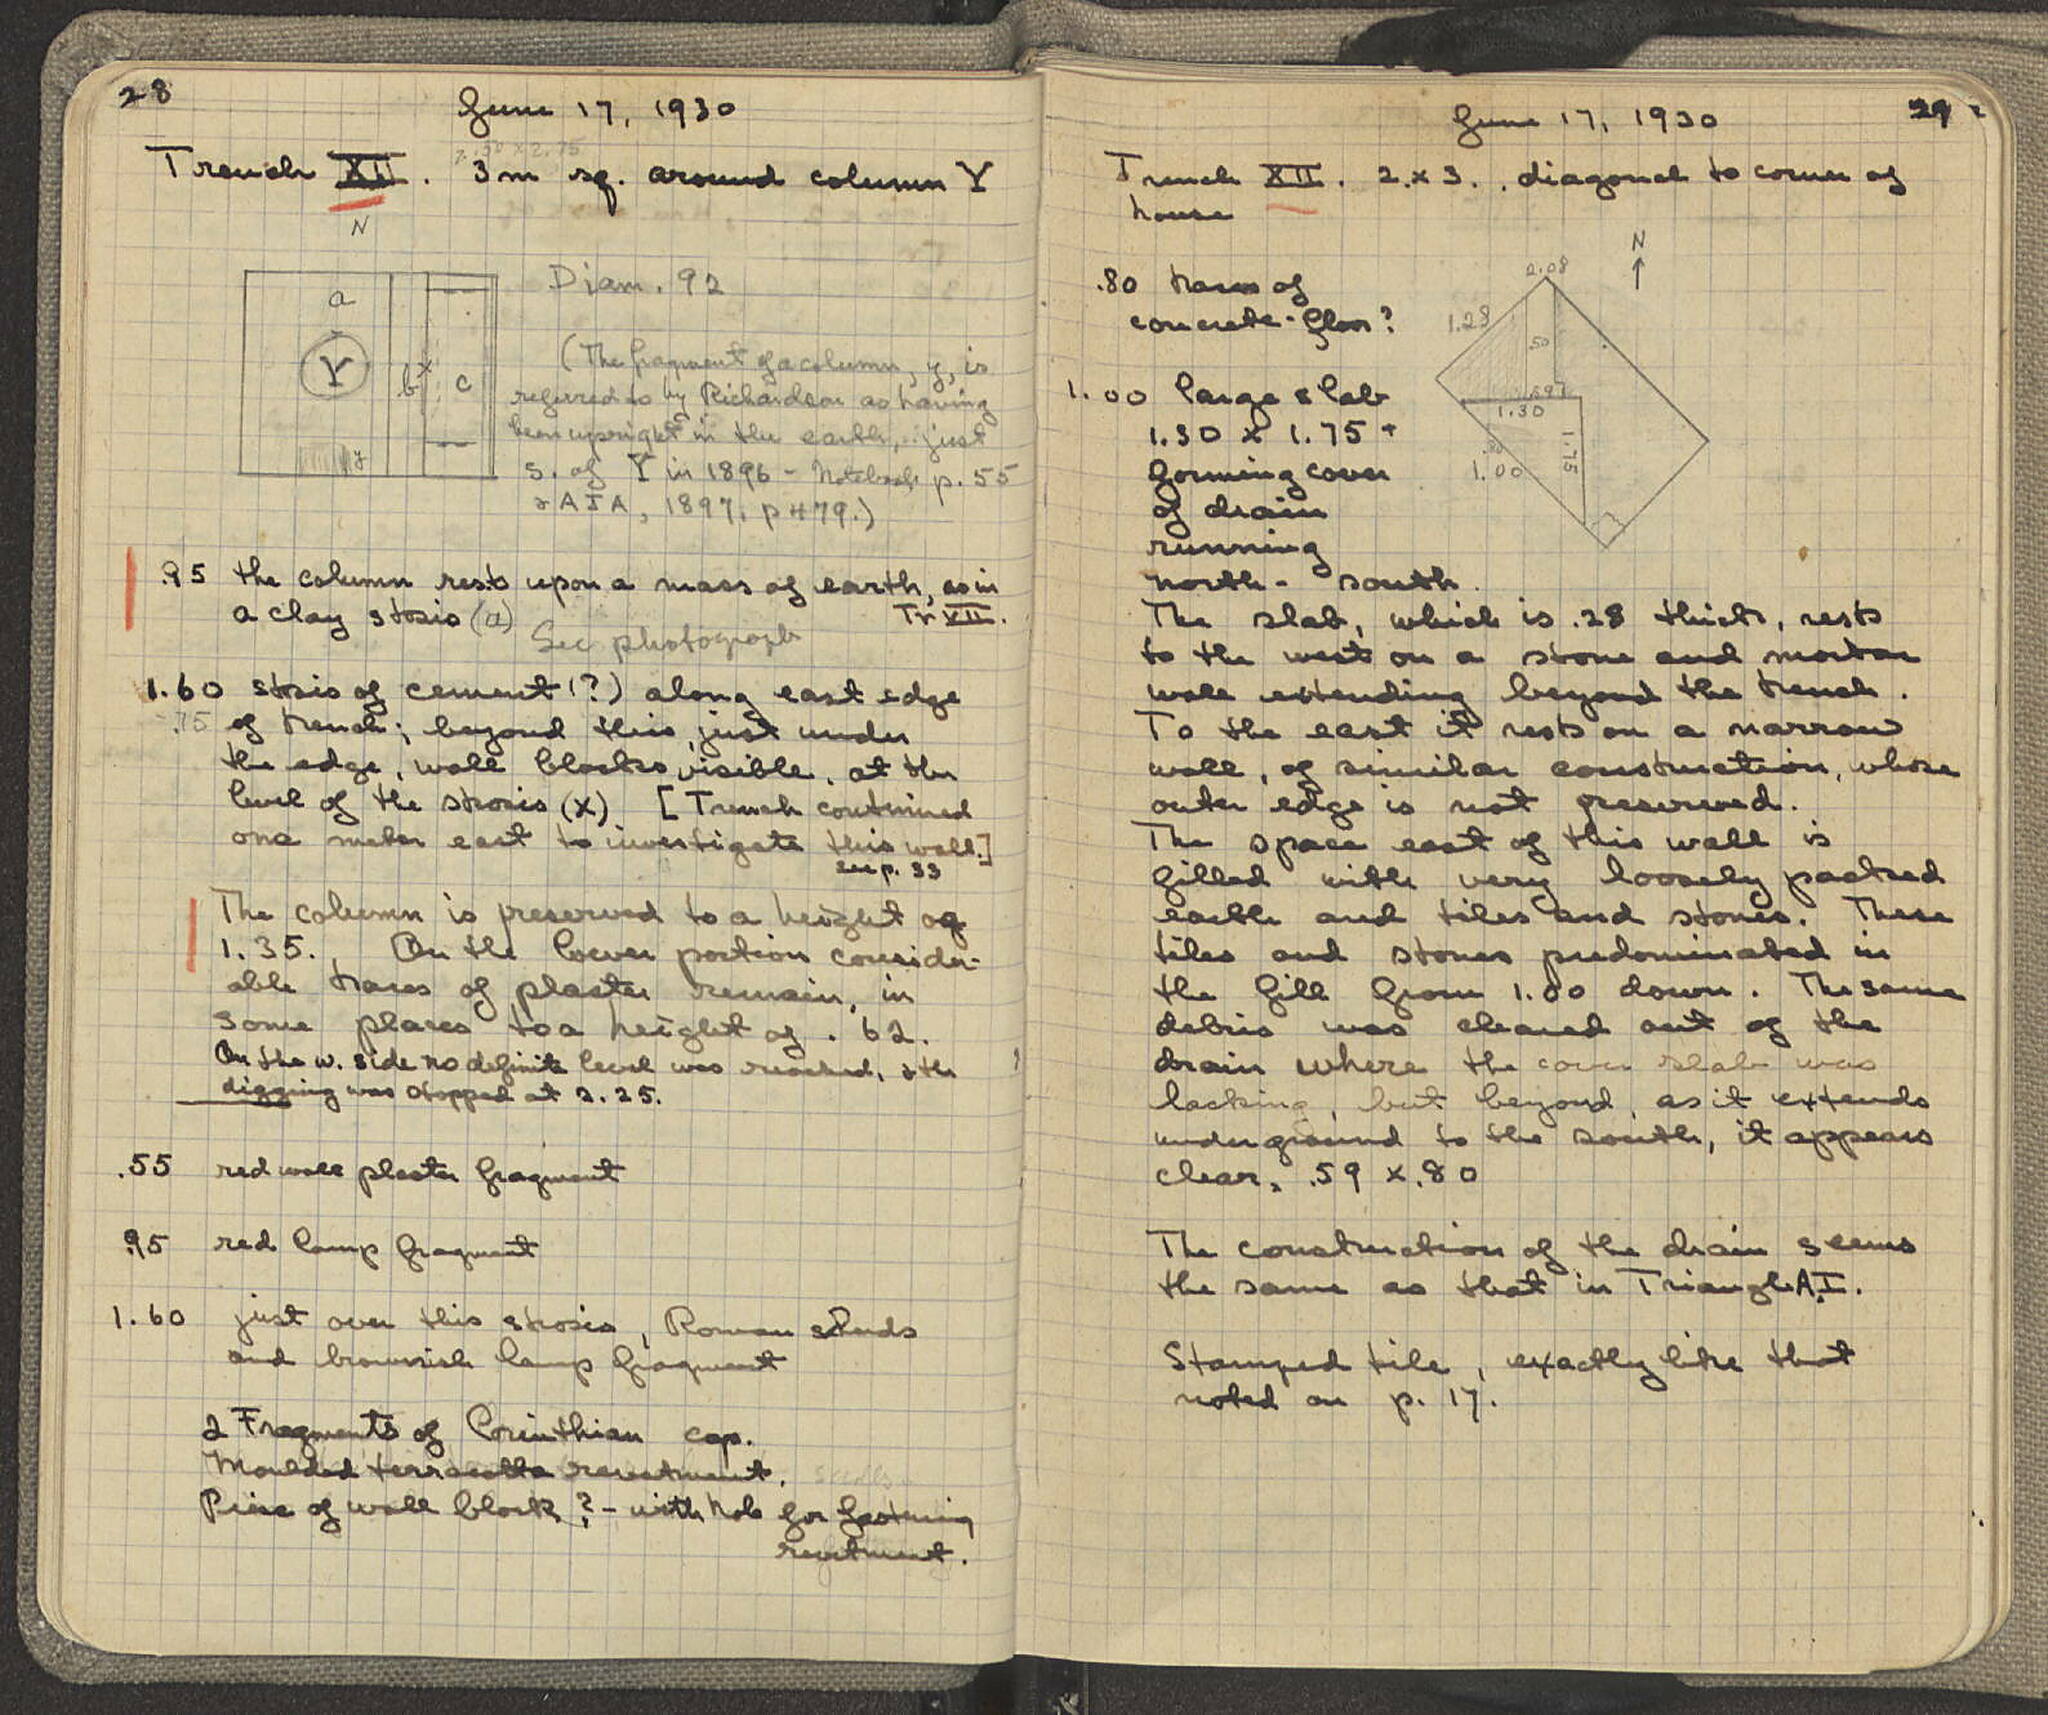 28
June 17, 1930
Trench XII. 3m sq. around column Y
N
a
Y
b
x
c
y
Diam. 92
(The fragment of a column, y, is
referred to by Richardson as having
been upright in the earth, just
S. of Y in 1896 - Notebook p. 55
& AJA, 1897, p 479.)
.95 the column rests upon a mass of earth, as in
a clay stosis (a) Tr XII.
See photograph
1.60 stosis of cement (?) along east edge
.75 of trench; beyond this, just under
the edge, wall blocks visible, at the
level of the strosis (x) [Trench continued
one meter east to investigate this wall.]
see p. 33
The column is preserved to a height of
1.35. On the lower portion consider-
able traces of plaster remain, in
some places to a height of .62.
On the w. side no definite level was reached, & the
digging was stopped at 2.25.
.55 red wall plaster fragment
.95 red lamp fragment
1.60 just over this strosis, Roman sherds
and brownish lamp fragment
2 Fragments of Corinthian cap.
Moulded terracotta revetment.
Piece of wall block? - with hole for fastening
revetment.
29
June 17, 1930
Trench XII. 2 x 3. , diagonal to corner of
house
N
2.08
1.28
.50
.597
1.30
1.75
.80
1.00
.80 traces of
concrete - floor?
1.00 large slab
1.30 x 1.75 +
forming cover
of drain
running
north - south.
The slab, which is .28 thick, rests
to the west on a stone and mortar
wall extending beyond the trench.
To the east it rests on a narrow
wall, of similar construction, whose
outer edge is not preserved.
The space east of this wall is
filled with very loosely packed
earth and tiles and stones. These
tiles and stones predominated in
the fill from 1.00 down. The same
debris was cleared out of the
drain where the cover slab was
lacking, but beyond, as it extends
underground to the south, it appears
clear, .59 x .80
The construction of the drain seems
the same as that in Triangle A,I.
Stamped tile, exactly like that
noted on p. 17.